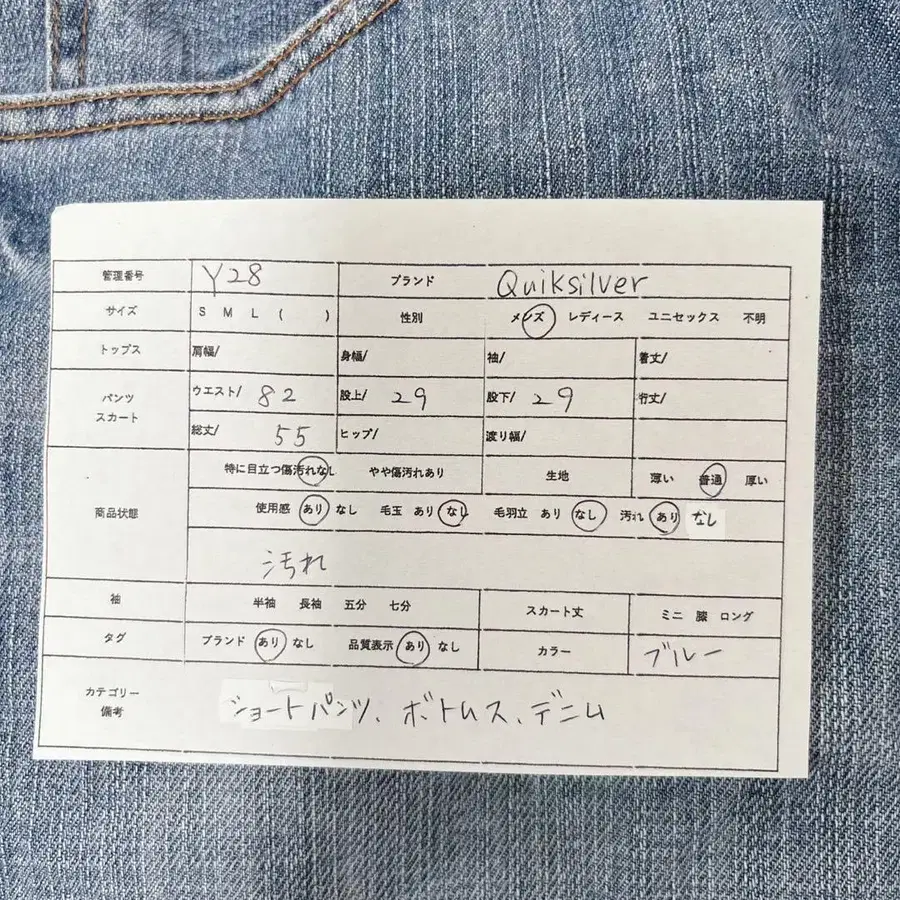 管理番号 Y28 ブランド Quiksilver
サイズ S M L ( ) 性別 メンズ レディース ユニセックス 不明
トップス 肩幅/ 身幅/ 袖/ 着丈/
パンツ ウエスト/ 82 股上/ 29 股下/ 29 裄丈/
スカート 総丈/ 55 ヒップ/ 渡り幅/
特に目立つ傷汚れなし やや傷汚れあり 生地 薄い 普通 厚い
商品状態 使用感 あり なし 毛玉 あり なし 毛羽立 あり なし 汚れ あり なし
汚れ
袖 半袖 長袖 五分 七分 スカート丈 ミニ 膝 ロング
タグ ブランド あり なし 品質表示 あり なし カラー ブルー
カテゴリー
備考 ショートパンツ、ボトムス、デニム